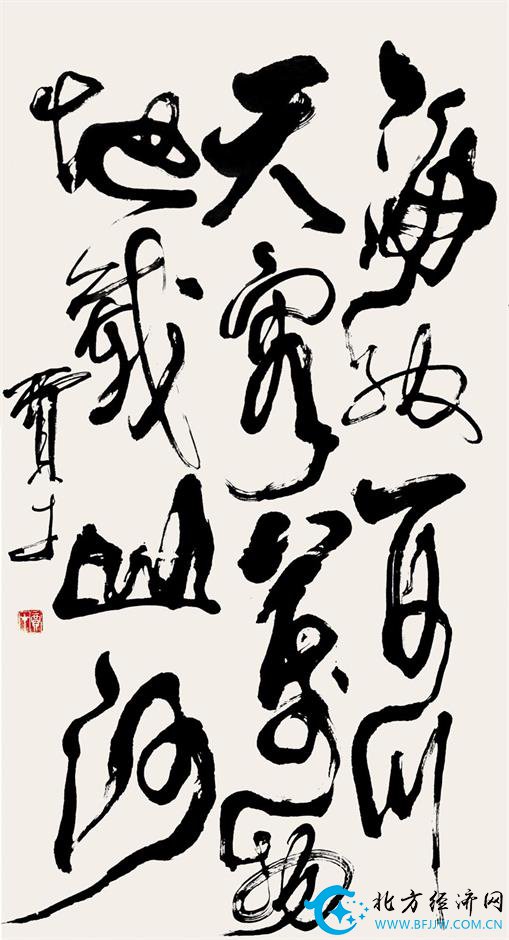 海纳百川
天容萬物
地載山河
北方经济网
WWW.BFJJW.COM.CN